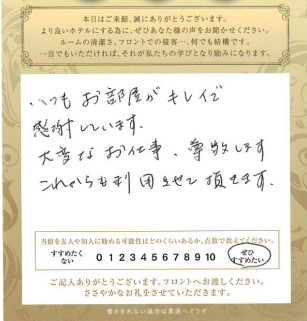 本日はご来館、誠にありがとうございます。
より良いホテルにする為に、ぜひあなた様の声をお聞かせください。
ルームの清潔さ、フロントでの接客…、何でも結構です。
一言でもいただければ、それが私たちの学びとなり励みになります。
いつもお部屋がキレイで
感謝しています。
大変なお仕事、尊敬します
これからも利用させて頂きます。
当館を友人や知人に勧める可能性はどのくらいあるか、点数で教えてください。
すすめたく
ない
0 1 2 3 4 5 6 7 8 9 10
ぜひ
すすめたい
ご記入ありがとうございます。フロントへお渡しください。
ささやかなお礼をさせていただきます。
書ききれない場合は裏面へどうぞ